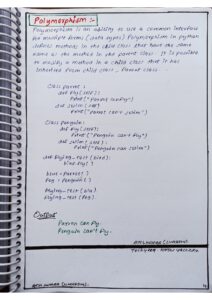 Polymorphism :-
Polymorphism is an ability to use a common interface
for multiple forms (data types) Polymorphism in python
defines methods in the child class that have the same
name as the method in the parent class. It is possible
to modify a method in a child class that it has
inherited from child class, Parent class.
Class parent :
def fly(self):
print("Parent can fly")
def swim(self)
print("Parent can't swim")
Class penguin :
def fly(self):
print("Penguin can't fly")
def swim(self):
print("Penguin can swim")
def flying_test(bird):
bird.fly()
bird = Parent()
Peg = penguin()
flying_test(bird)
flying_test(Peg)
Output
Parent can fly.
Penguin can't fly.